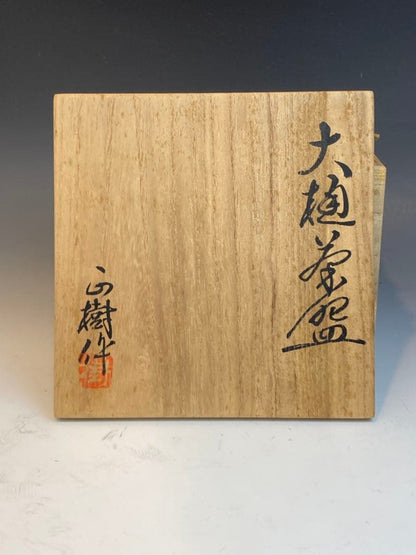 大樋茶盌
正樹作